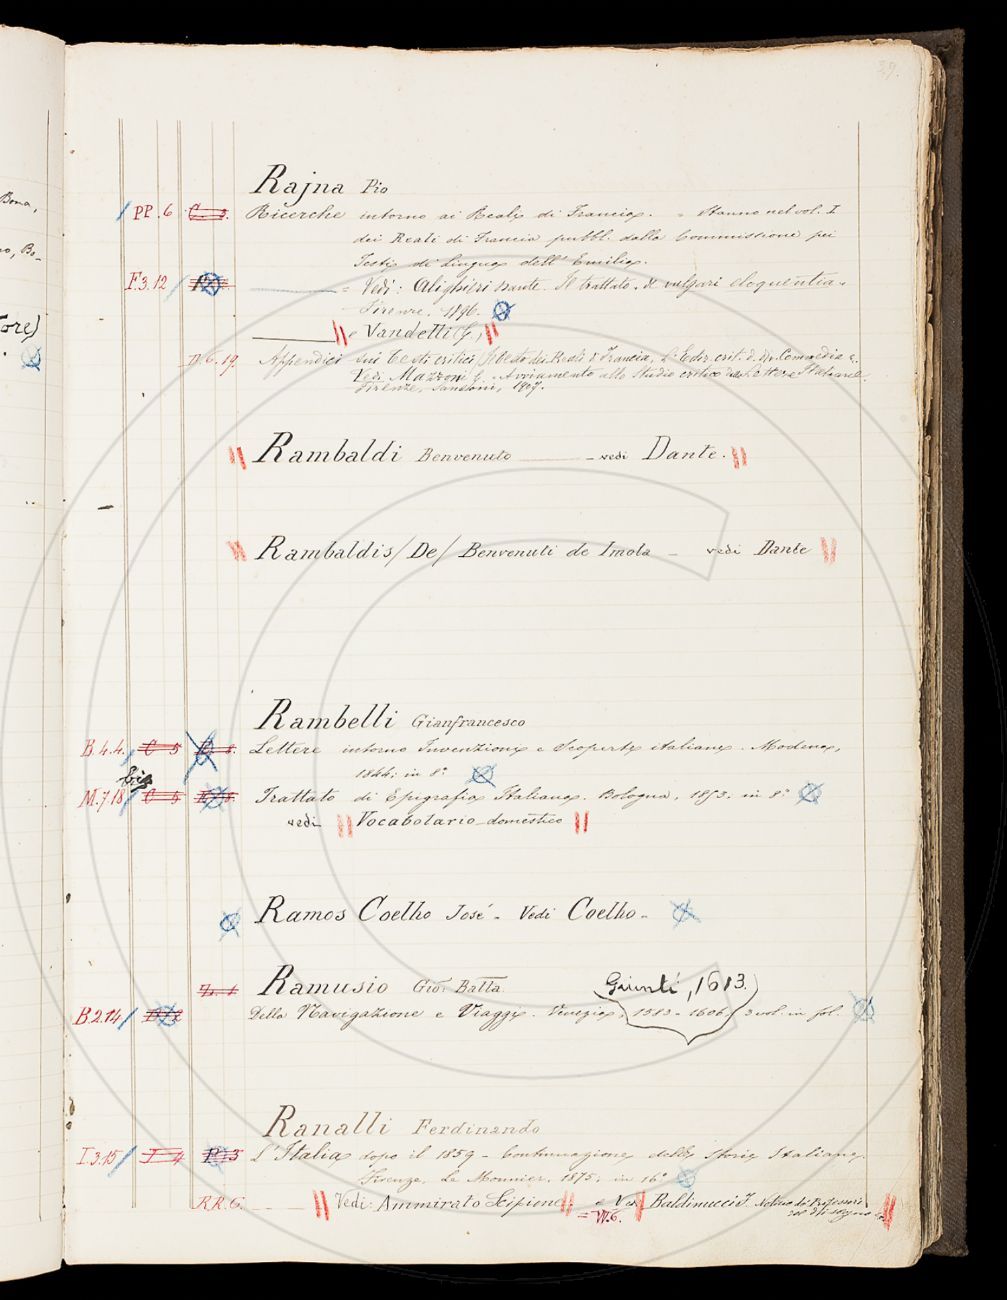 39.
Rajna Pio
PP. 6 Ricerche intorno ai Reali di Francia. = Stanno nel vol. I
dei Reali di Francia pubbl. dalla Commissione pei
Testi di Lingua dell' Emilia.
F.3.12 = Vedi: Alighieri Dante. Il trattato De vulgari eloquentia.
Firenze, 1896.
e Vandelli (G.)
W.6.19. Appendici sui Testi critici
Vedi Mazzoni G. Avviamento allo studio critico delle Lettere Italiane.
Firenze, Sansoni, 1907.
Rambaldi Benvenuto — vedi Dante.
Rambaldis /De/ Benvenuti de Imola — vedi Dante
Rambelli Gianfrancesco
B 4.4. C 5 Lettere intorno Invenzioni e Scoperte italiane. Modena,
1844; in 8°
bis
M.7.18 C 5 Trattato di Epigrafia Italiana. Bologna, 1853; in 8°
vedi Vocabolario domestico
Ramos Coelho José - Vedi Coelho -
Ramusio Gio: Batta Giunti, 1613.
B.2.14 Delle Navigazione e Viaggi. Venezia, 1583 - 1606, 3 vol. in fol.
Ranalli Ferdinando
I.3.15 I 4 L'Italia dopo il 1859 - Continuazione delle Storie Italiane.
Firenze, Le Monnier, 1875; in 16°
R.R.6. Vedi: Ammirato Scipione e Vedi Baldinucci F. Notizie dei Professori
del disegno
= W.6.